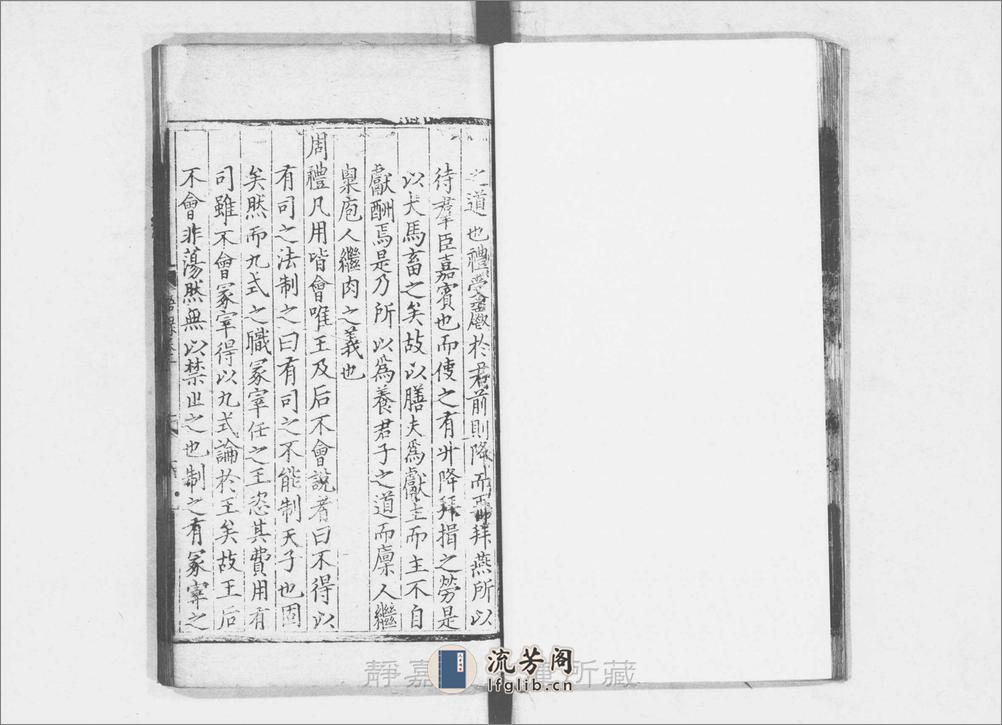 之道也禮受爵於君前則降而再拜燕所以
待羣臣嘉賓也而使之有升降拜揖之勞是
以犬馬畜之矣故以膳夫爲獻主而主不自
獻酬焉是乃所以爲養君子之道而廩人繼
粟庖人繼肉之義也
周禮凡用皆會唯王及后不會說者曰不得以
有司之法制之曰有司之不能制天子也固
矣然而九式之職冢宰任之王恣其費用有
司雖不會冢宰得以九式論於王矣故王后
不會非蕩然無以禁止之也制之有冢宰之
流芳阁
lfglib.cn
靜嘉 所藏